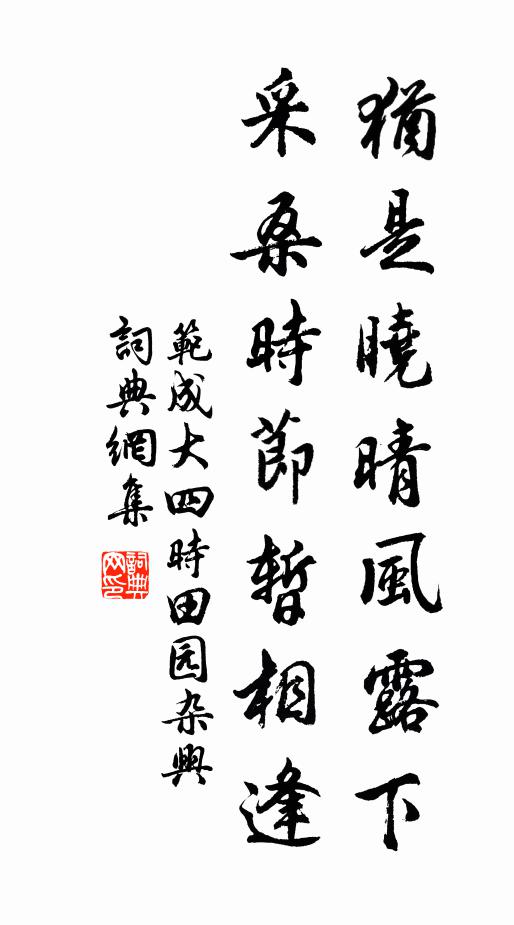 猶是曉晴風露下
采桑時節暫相逢
範成大四時田园杂興
詞典網集
詞典网印